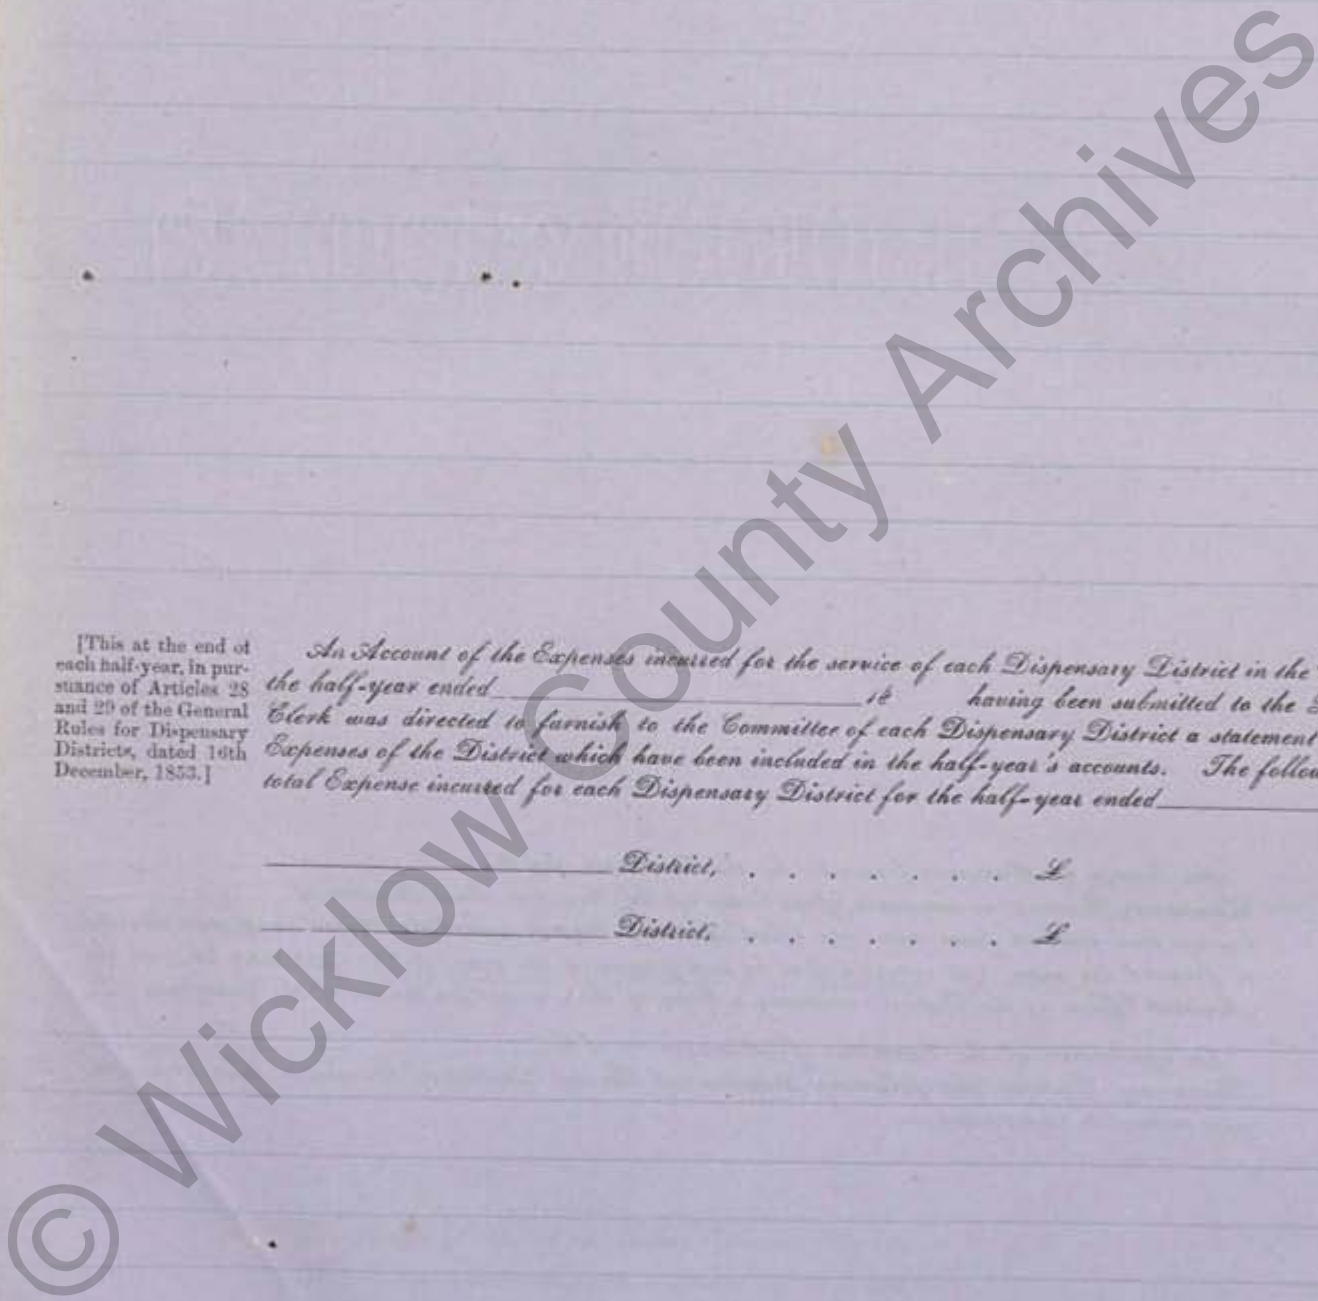 [This at the end of
each half-year, in pur-
suance of Articles 28
and 29 of the General
Rules for Dispensary
Districts, dated 16th
December, 1853.]
An Account of the Expenses incurred for the service of each Dispensary District in the
the half-year ended 18 having been submitted to the
Clerk was directed to furnish to the Committee of each Dispensary District a statement
Expenses of the District which have been included in the half-year's accounts. The follow
total Expense incurred for each Dispensary District for the half-year ended
District, . . . . . . . . £
District, . . . . . . . . £
© Wicklow County Archives